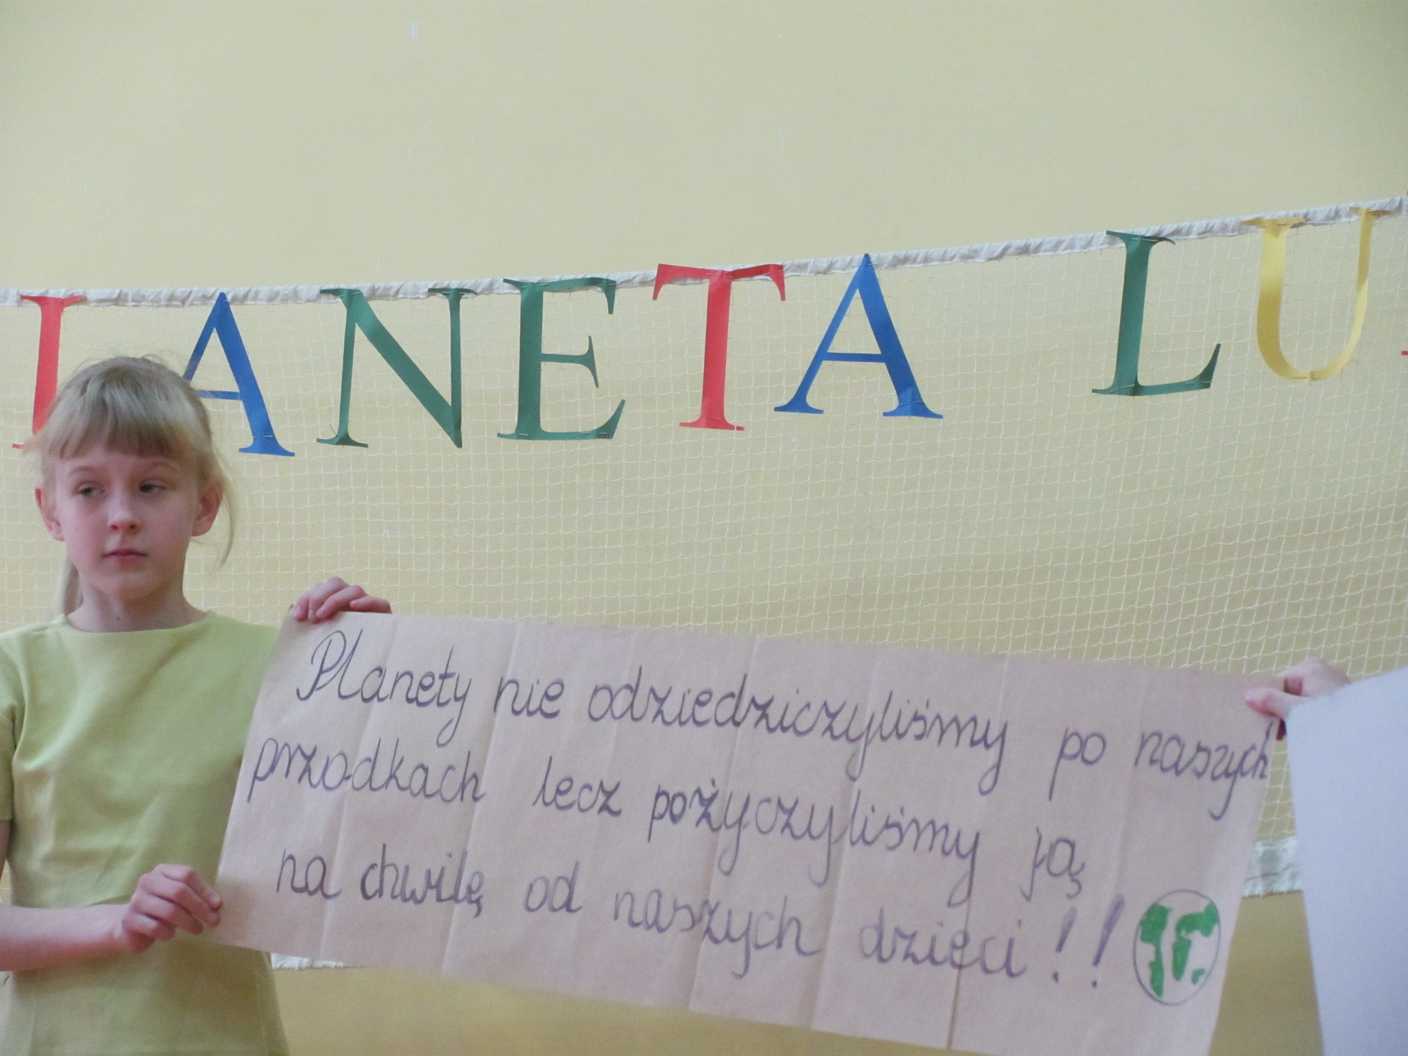 LANETA LU
Planety nie odziedziczyliśmy po naszych
przodkach lecz pożyczyliśmy ją
na chwilę od naszych dzieci!!